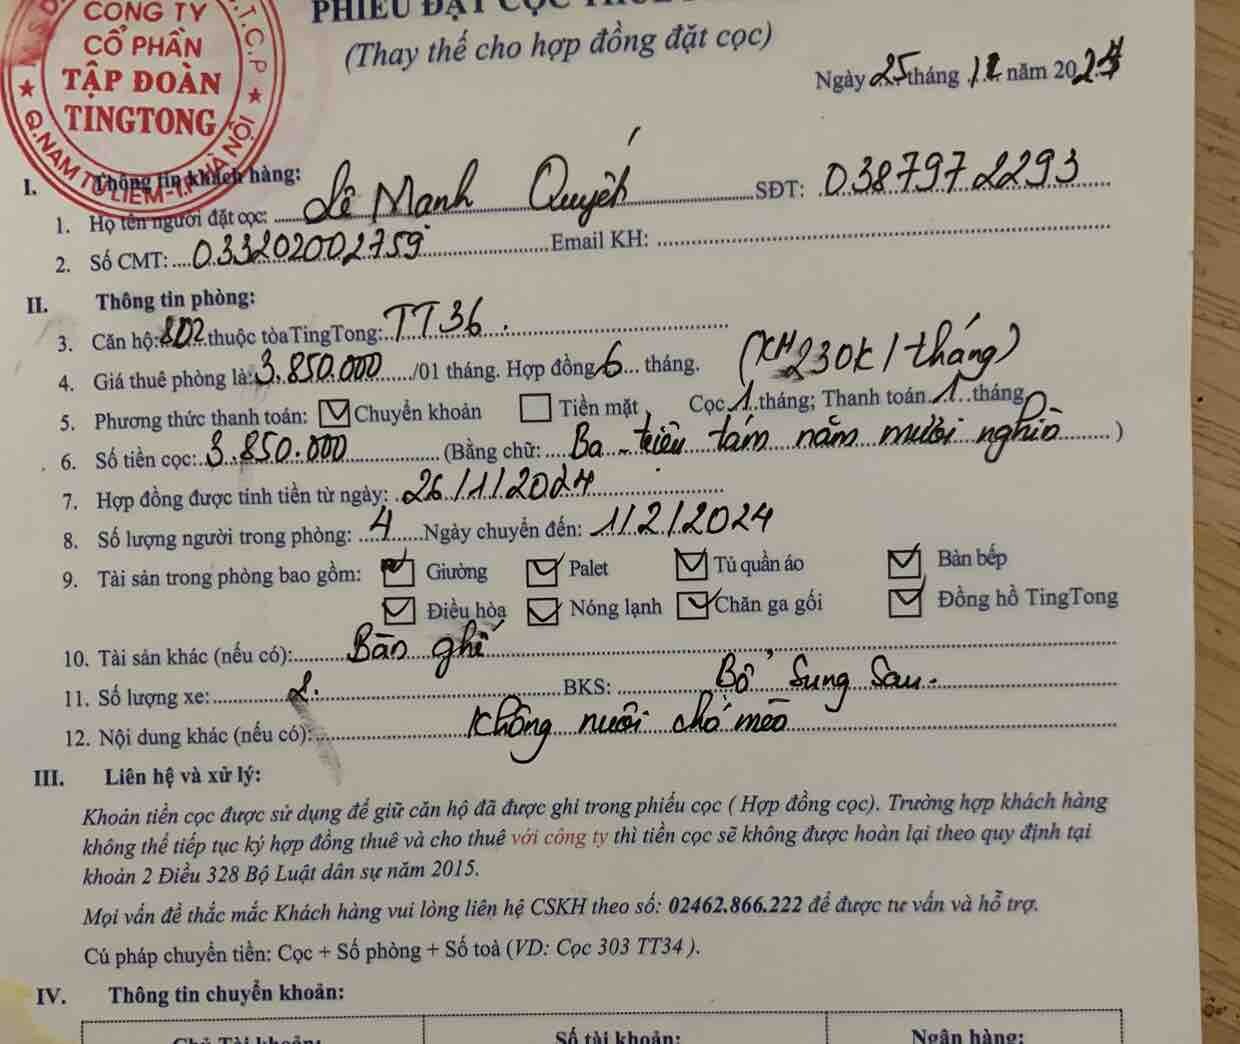 CÔNG TY
CỔ PHẦN
TẬP ĐOÀN
TINGTONG
Q.NAM TỪ LIÊM-T.P HÀ NỘI
PHIẾU ĐẶT CỌC
(Thay thế cho hợp đồng đặt cọc)
Ngày 25 tháng 11 năm 2024
I. Thông tin khách hàng:
1. Họ tên người đặt cọc: Lê Mạnh Quyết SĐT: 0387972293
2. Số CMT: 033202002759 Email KH:
II. Thông tin phòng:
3. Căn hộ: 802 thuộc tòa TingTong: TT36.
4. Giá thuê phòng là: 3.850.000 /01 tháng. Hợp đồng 6 tháng. (KM 230k/tháng)
5. Phương thức thanh toán: Chuyển khoản Tiền mặt, Cọc 1 tháng; Thanh toán 1 tháng
6. Số tiền cọc: 3.850.000 (Bằng chữ: Ba triệu tám năm mươi nghìn)
7. Hợp đồng được tính tiền từ ngày: 26/11/2024
8. Số lượng người trong phòng: 4 Ngày chuyển đến: 1/12/2024
9. Tài sản trong phòng bao gồm: Giường Palet Tủ quần áo Bàn bếp
Điều hòa Nóng lạnh Chăn ga gối Đồng hồ TingTong
10. Tài sản khác (nếu có): Bàn ghế
11. Số lượng xe: 2. BKS: Bổ sung sau.
12. Nội dung khác (nếu có): Không nuôi chó mèo
III. Liên hệ và xử lý:
Khoản tiền cọc được sử dụng để giữ căn hộ đã được ghi trong phiếu cọc ( Hợp đồng cọc). Trường hợp khách hàng
không thể tiếp tục ký hợp đồng thuê và cho thuê với công ty thì tiền cọc sẽ không được hoàn lại theo quy định tại
khoản 2 Điều 328 Bộ Luật dân sự năm 2015.
Mọi vấn đề thắc mắc Khách hàng vui lòng liên hệ CSKH theo số: 02462.866.222 để được tư vấn và hỗ trợ.
Cú pháp chuyển tiền: Cọc + Số phòng + Số toà (VD: Cọc 303 TT34 ).
IV. Thông tin chuyển khoản:
Chủ Tài khoản: Số tài khoản: Ngân hàng: